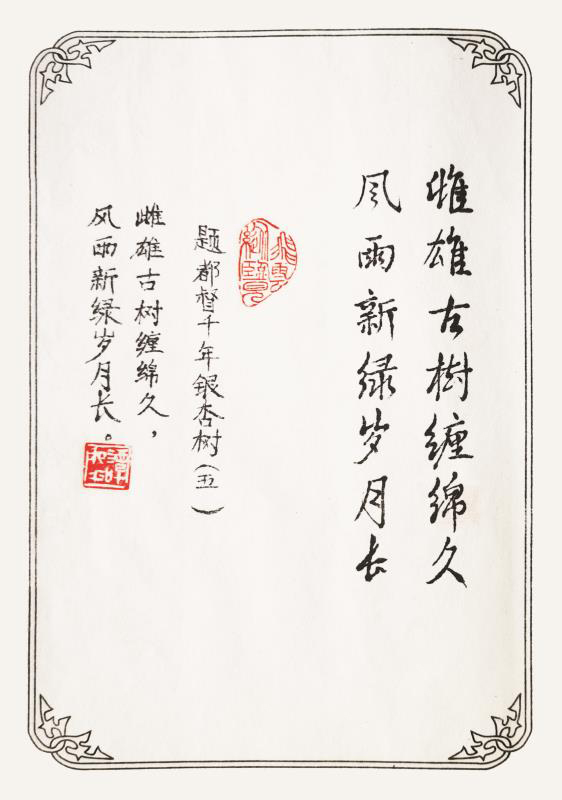 雌雄古樹缠绵久
风雨新绿岁月长
题都督千年银杏树（五）
雌雄古树缠绵久，
风雨新绿岁月长。